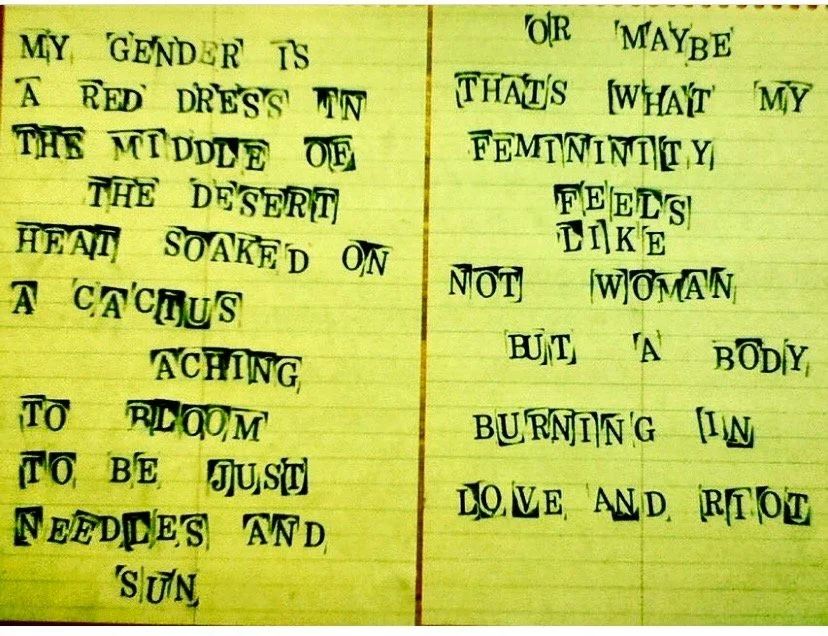 MY GENDER IS
A RED DRESS IN
THE MIDDLE OF
THE DESERT
HEAT SOAKED ON
A CACTUS
ACHING
TO BLOOM
TO BE JUST
NEEDLES AND
SUN
OR MAYBE
THAT'S WHAT MY
FEMININITY
FEELS
LIKE
NOT WOMAN
BUT A BODY
BURNING IN
LOVE AND RIOT